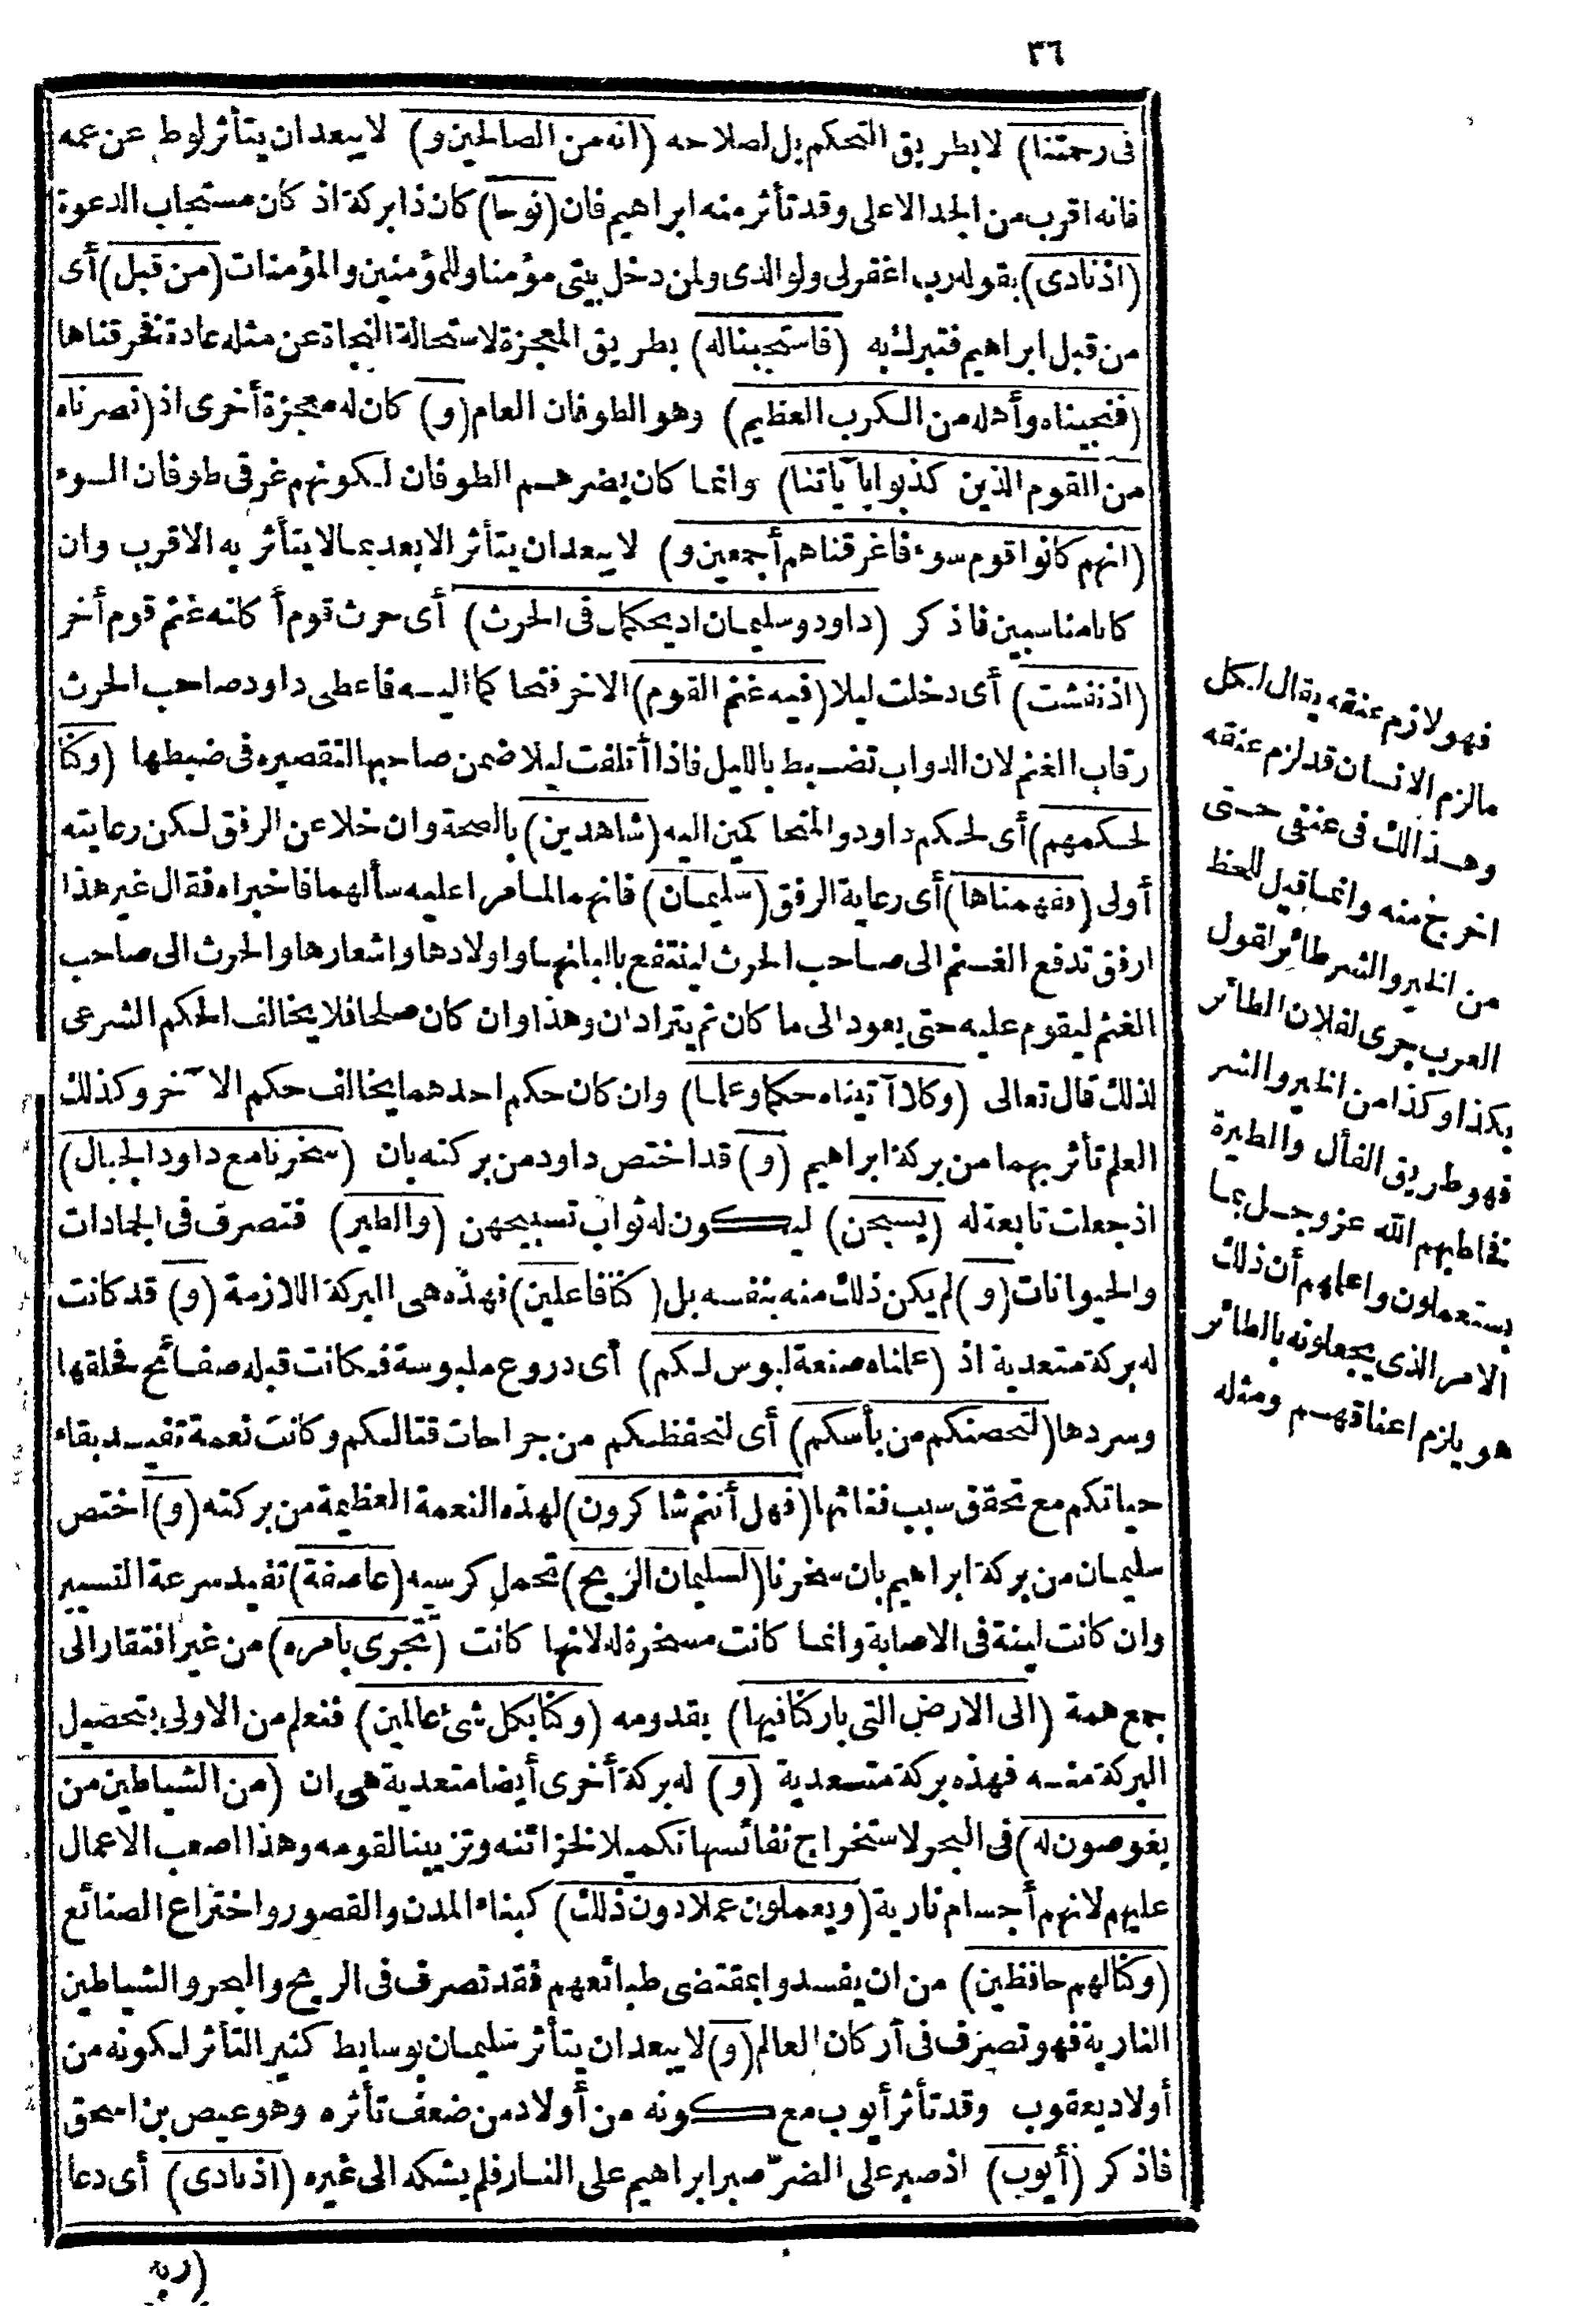 ٣٦
فى رحمتنا) لا بطريق التحكم بل لصلاحه (انه من الصالحين و) لا يبعد ان يتأثر لوط عن عمه
فانه اقرب من الجد الاعلى وقد تأثر منه ابراهيم فان (نوحا) كان ذا بركة اذ كان مستجاب الدعوة
(اذ نادى) بقوله رب اغفر لى ولوالدى ولمن دخل بيتى مؤمنا وللمؤمنين والمؤمنات (من قبل) أى
من قبل ابراهيم فتبرك به (فاستجبنا له) بطريق المعجزة لاستحالة النجاة عن مثله عادة فخرقناها
(فنجيناه وأهله من الكرب العظيم) وهو الطوفان العام (و) كان له معجزة أخرى اذ (نصرناه
من القوم الذين كذبوا بآياتنا) وانما كان يضرهم الطوفان لكونهم غرقى طوفان السوء
(انهم كانوا قوم سوء فاغرقناهم أجمعين و) لا يبعد ان يتأثر الابعد بما لا يتأثر به الاقرب وان
كانا مناسبين فاذكر (داود وسليمان اذ يحكمان فى الحرث) أى حرث قوم أكلته غنم قوم أخر
(اذ نفشت) أى دخلت ليلا (فيه غنم القوم) الاخر فتحاكما اليه فاعطى داود صاحب الحرث
رقاب الغنم لان الدواب تضبط بالليل فاذا أتلفت ليلا ضمن صاحبها لتقصيره فى ضبطها (وكنا
لحكمهم) أى لحكم داود والمتحاكمين اليه (شاهدين) بالصحة وان خلا عن الرفق لكن رعايته
أولى (ففهمناها) أى رعاية الرفق (سليمان) فانهما لما مرا عليه سألهما فاخبراه فقال غير هذا
ارفق تدفع الغنم الى صاحب الحرث لينتفع بالبانها واولادها واشعارها والحرث الى صاحب
الغنم ليقوم عليه حتى يعود الى ما كان ثم يترادان وهذا وان كان صلحا فلا يخالف الحكم الشرعى
لذلك قال تعالى (وكلا آتيناه حكما وعلما) وان كان حكم احدهما يخالف حكم الآخر وكذلك
العلم تأثر بهما من بركة ابراهيم (و) قد اختص داود من بركته بان (سخرنا مع داود الجبال)
اذ جعلت تابعة له (يسبحن) ليكون له ثواب تسبيحهن (والطير) فتصرف فى الجمادات
والحيوانات (و) لم يكن ذلك منه بنفسه بل (كنا فاعلين) فهذه هى البركة اللازمة (و) قد كانت
له بركة متعدية اذ (علمناه صنعة لبوس لكم) أى دروع ملبوسة فكانت قبله صفائح فحلقها
وسردها (لتحصنكم من بأسكم) أى لتحفظكم من جراحات قتالكم وكانت نعمة تفيد بقاء
حياتكم مع تحقق سبب فنائها (فهل أنتم شاكرون) لهذه النعمة العظيمة من بركته (و) اختص
سليمان من بركة ابراهيم بان سخرنا (لسليمان الريح) تحمل كرسيه (عاصفة) تفيد سرعة التسيير
وان كانت لينة فى الاصابة وانما كانت مسخرة له لانها كانت (تجرى بامره) من غير افتقار الى
جمع همة (الى الارض التى باركنا فيها) بقدومه (وكنا بكل شئ عالمين) فنعلم من الاولى بتحصيل
البركة منه فهذه بركة متعدية (و) له بركة أخرى أيضا متعدية هى ان (من الشياطين من
يغوصون له) فى البحر لاستخراج نفائسها تكميلا لخزائنه وتزيينا لقومه وهذا اصعب الاعمال
عليهم لانهم أجسام نارية (ويعملون عملا دون ذلك) كبناء المدن والقصور واختراع الصنائع
(وكنا لهم حافظين) من ان يفسدوا بمقتضى طبائعهم فقد تصرف فى الريح والبحر والشياطين
النارية فهو تصرف فى أركان العالم (و) لا يبعد ان يتأثر سليمان بوسايط كثير التأثر لكونه من
أولاد يعقوب وقد تأثر أيوب مع كونه من أولاد من ضعف تأثره وهو عيص بن اسحق
فاذكر (أيوب) اذ صبر على الضر صبر ابراهيم على النار فلم يشكه الى غيره (اذ نادى) أى دعا
(ربه
فهو لازم عنقه يقال لكل
ما لزم الانسان قد لزم عنقه
وهذا لك فى عنقى حتى
اخرج منه وانما قيل للحظ
من الخير والشر طائر لقول
العرب جرى لفلان الطائر
بكذا وكذا من الخير والشر
فهو طريق الفأل والطيرة
فخاطبهم الله عز وجل بما
يستعملون واعلمهم أن ذلك
الامر الذى يجعلونه بالطائر
هو يلزم اعناقهم ومثله